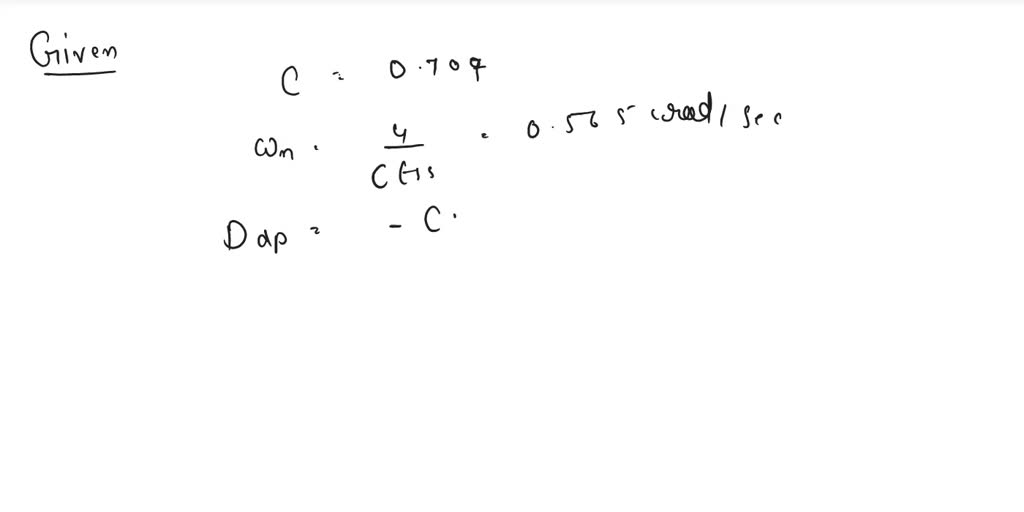 Given
C = 0.707
ωn = 4 / C ts = 0.565 rad/sec
D dp = - C.